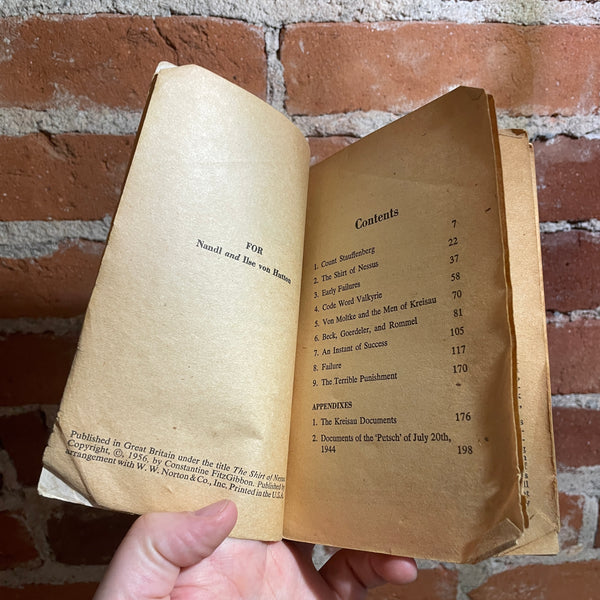 FOR
Nandl and Ilse von Hatten
Published in Great Britain under the title The Shirt of Nessus
Copyright, ©, 1956, by Constantine FitzGibbon. Published by
arrangement with W. W. Norton & Co., Inc. Printed in the U.S.A.
Contents
1. Count Stauffenberg 7
2. The Shirt of Nessus 22
3. Early Failures 37
4. Code Word Valkyrie 58
5. Von Moltke and the Men of Kreisau 70
6. Beck, Goerdeler, and Rommel 81
7. An Instant of Success 105
8. Failure 117
9. The Terrible Punishment 170
APPENDIXES
1. The Kreisau Documents 176
2. Documents of the 'Putsch' of July 20th,
1944 198